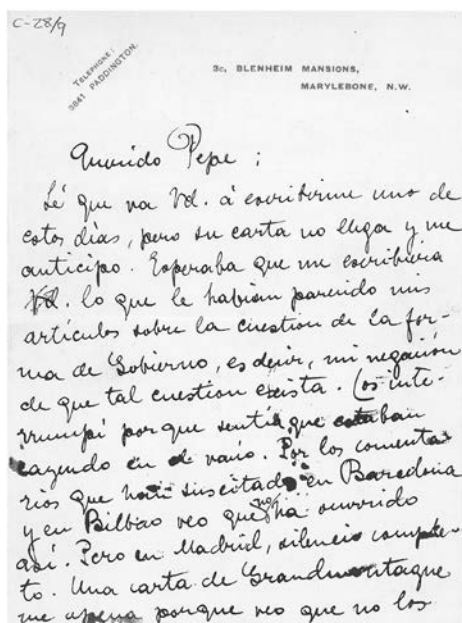 C-28/9
TELEPHONE:
3841 PADDINGTON.
3c, BLENHEIM MANSIONS,
MARYLEBONE, N.W.
Querido Pepe:
Sé que va Vd. á escribirme uno de
estos días, pero su carta no llega y me
anticipo. Esperaba que me escribiera
Vd. lo que le habían parecido mis
artículos sobre la cuestion de la for-
ma de Gobierno, es decir, mi negación
de que tal cuestion exista. Los inte-
rrumpí porque sentía que estaban
cayendo en el vacío. Por los comenta
rios que han suscitado en Barcelona
y en Bilbao veo que no ha ocurrido
así. Pero en Madrid, silencio comple-
to. Una carta de Grandmontagne
me apena porque veo que no los